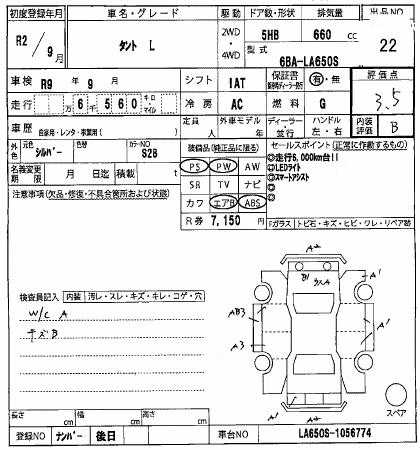 初度登録年月 車名・グレード 駆動 ドア数・形状 排気量 出品NO
R2/9月 タント L 2WD・4WD 5HB 660 cc 22
型式 6BA-LA650S
車検 R9年 9月 シフト IAT 保証書 有・無 評価点
走行 万 6千 560 キロ・マイル 冷房 AC 燃料 G 3.5
車歴 自家用・レンタ・事業用( ) 定員 人 外車モデル 年 ディーラー・並行 ハンドル 左・右 内装評価 B
外色 元色 シルバー 色替 カラーNO S28
装備品(純正品に限る) セールスポイント(正常に作動するもの)
名義変更期限 月 日迄 積載 t
PS PW AW
◎走行6,000km台!!
SR TV ナビ
◎LEDライト
カワ エアB ABS
◎スマートアシスト
◎
◎
注意事項(欠品・修復・不具合箇所および状態)
R券 7,150 円
Fガラス トビ石・キズ・ヒビ・ワレ・リペア跡
検査員記入 内装 汚レ・スレ・キズ・キレ・コゲ・穴
W/C A
A2
A1
B1
AB3
A1
A3
A1
A2
スペア
長さ cm 幅 cm 高さ cm
登録NO ナンバー 後日 車台NO LA650S-1056774